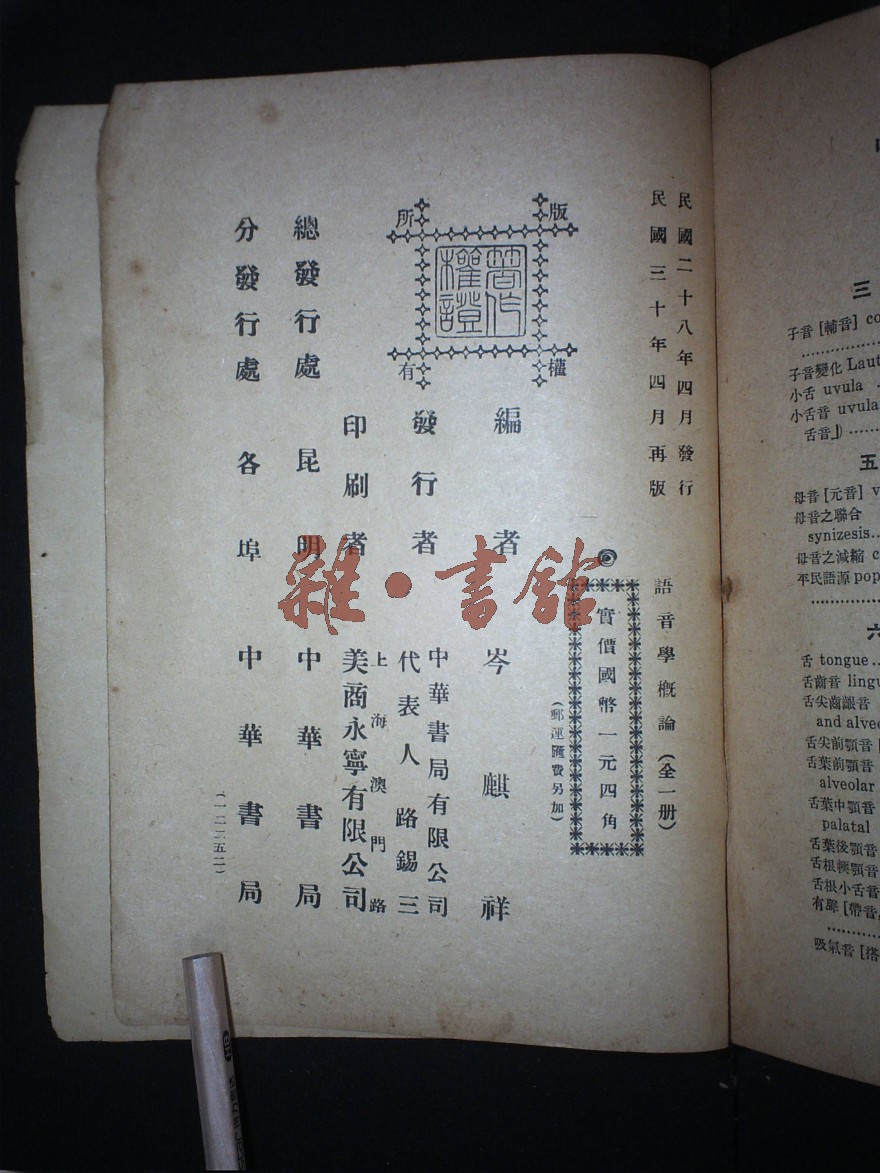 民國二十八年四月發行
民國三十年四月再版
語音學概論（全一册）
實價國幣一元四角
（郵運匯費另加）
版權所有
著作權證
編者 岑麒祥
發行者 中華書局有限公司
代表人 路錫三
印刷者 上海澳門路
美商永寧有限公司
總發行處 昆明 中華書局
分發行處 各埠 中華書局
（一二二五二）
雜·書館
三
子音［輔音］co
子音變化 Laut
小舌 uvula
小舌音 uvula
舌音」）
五
母音［元音］v
母音之聯合
synizesis
母音之減縮 c
平民語源 pop
六
舌 tongue
舌齒音 lingu
舌尖齒齦音
and alveo
舌尖前顎音
舌葉前顎音
alveolar
舌葉中顎音
palatal
舌葉後顎音
舌根輭顎音
舌根小舌音
吸氣音［搭